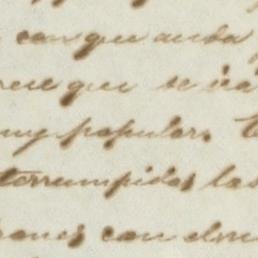 con que anda
rece que se irá
muy popular. E
terrumpidas las
ones con el mu